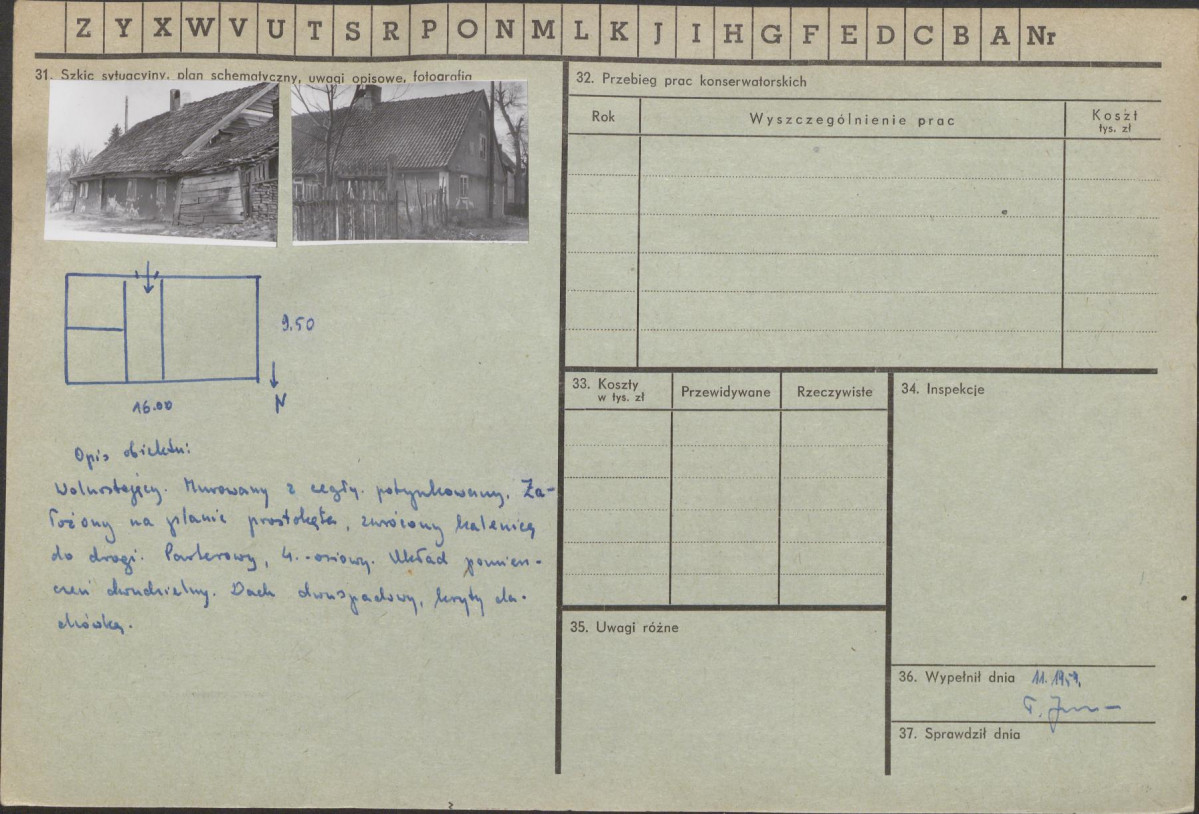 Z Y X W V U T S R P O N M L K J I H G F E D C B A Nr
31. Szkic sytuacyjny, plan schematyczny, uwagi opisowe, fotografia
9.50
16.00
N
Opis obiektu:
Wolnostojący. Murowany z cegły, potynkowany. Za-
łożony na planie prostokąta, zwrócony kalenicą
do drogi. Parterowy, 4.-osiowy. Układ pomiesz-
czeń dwudzielny. Dach dwuspadowy, kryty da-
chówką.
32. Przebieg prac konserwatorskich
Rok
Wyszczególnienie prac
Koszt
tys. zł
33. Koszty
w tys. zł
Przewidywane
Rzeczywiste
34. Inspekcje
35. Uwagi różne
36. Wypełnił dnia
37. Sprawdził dnia